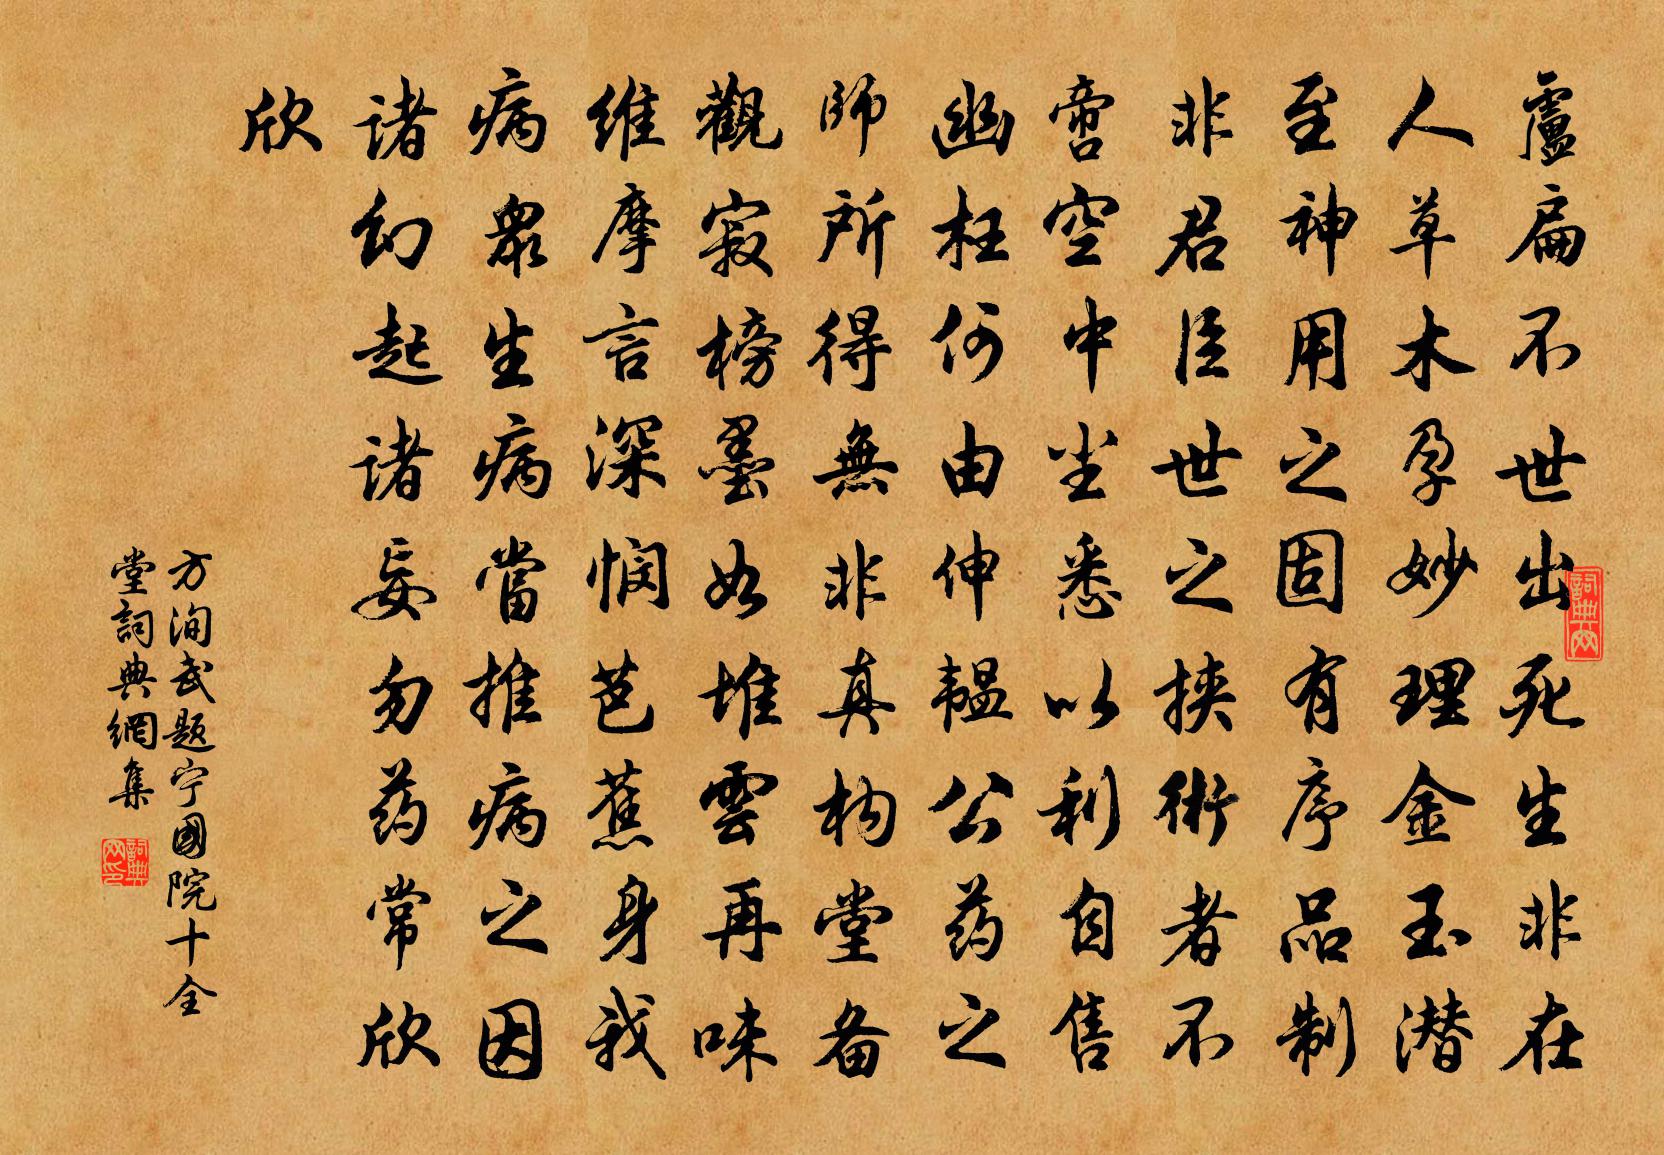 盧扁不世出死生非在
人草木孕妙理金玉潜
至神用之固有序品制
非君臣世之挟術者不
啻空中尘悉以利自售
幽枉何由伸韫公药之
師所得無非真构堂备
觀寂榜墨如堆雲再味
维摩言深悯芭蕉身我
病眾生病當推病之因
诸幻起诸妄勿药常欣
欣
方洵武题宁國院十全
堂詞典網集
詞典网
詞典网印